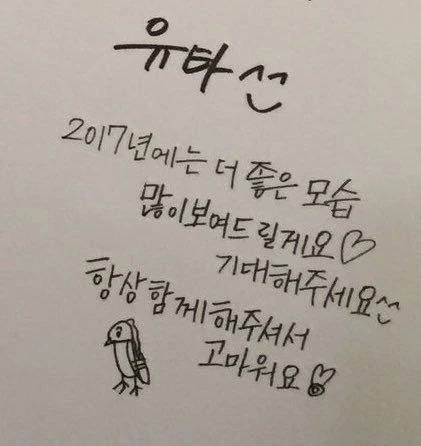 유타 선
2017년에는 더 좋은 모습
많이 보여드릴게요♡
기대해주세요
항상 함께해주셔서
고마워요!